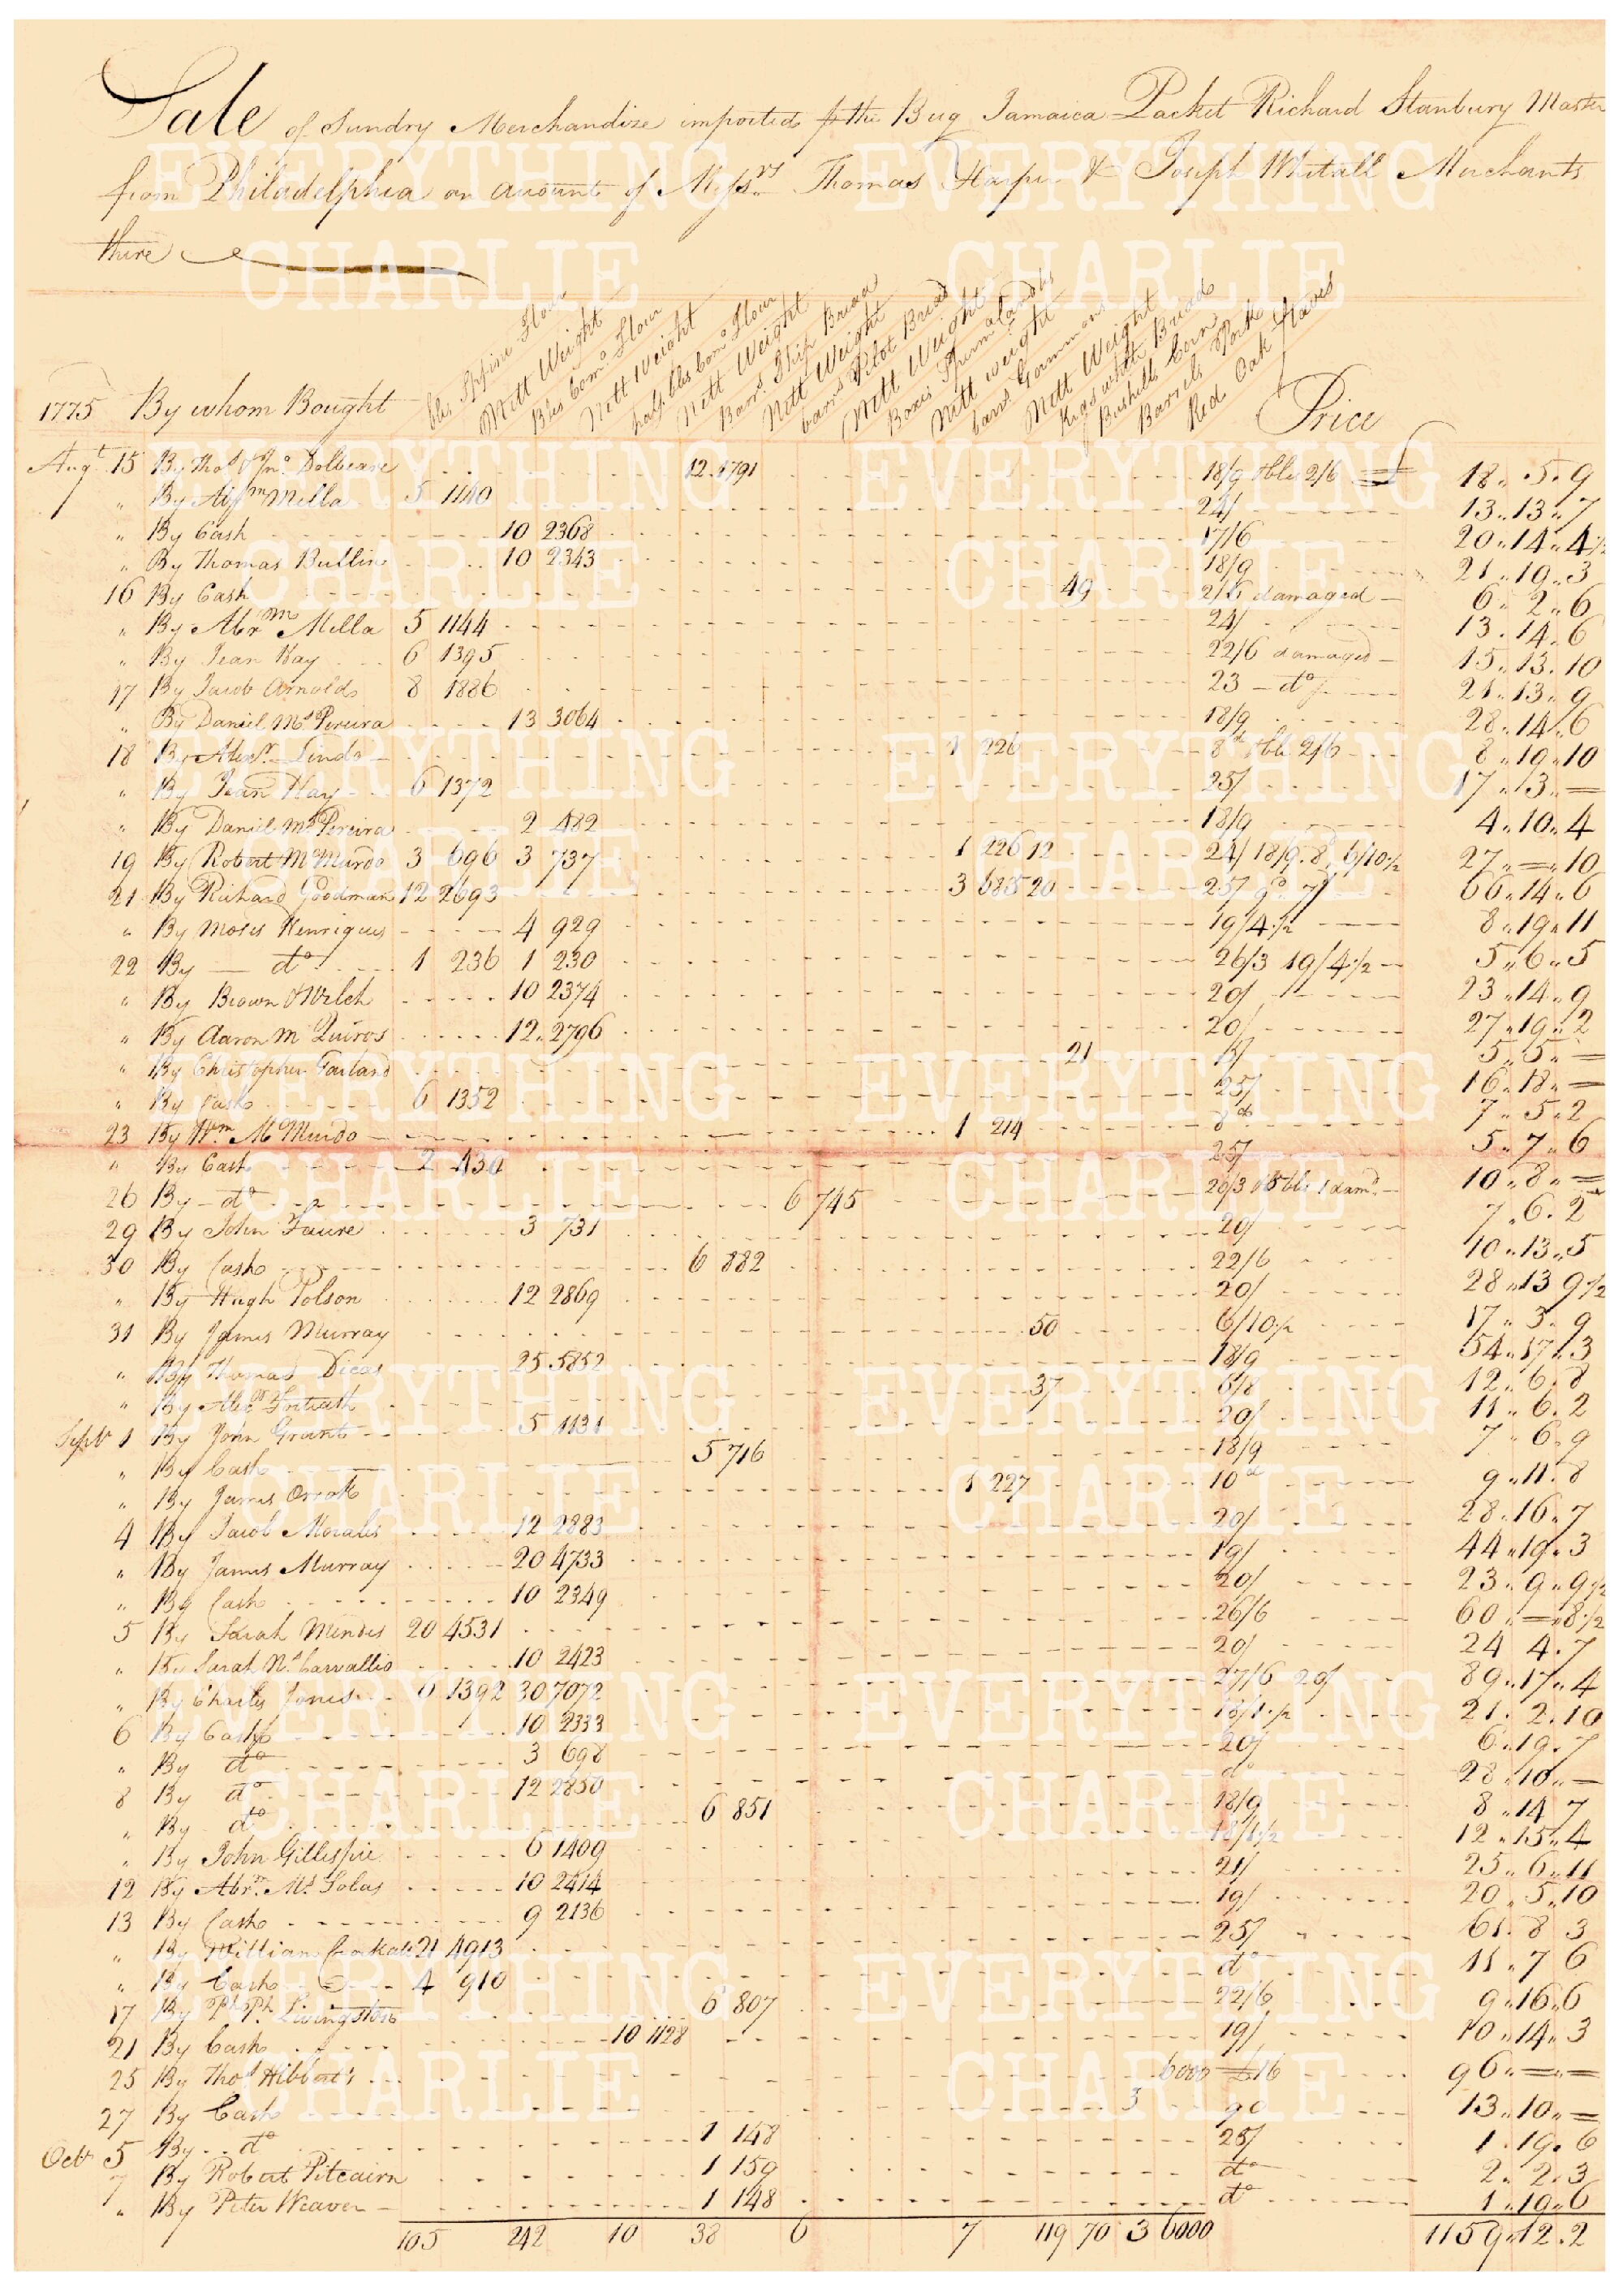 Sale of Sundry Merchandize imported p the Brig Jamaica Packet Richard Stanbury Master
from Philadelphia on account of Messrs Thomas Harper & Joseph Whitall Merchants
there
bls Sppine Flour
Nett Weight
Bls Como Flour
Nett Weight
half bls Como Flour
Nett Weight
Barrs Ship Bread
Nett Weight
barrs Pilot Bread
Nett Weight
Boxes Sperm Candles
Nett weight
barrs Gammons
Nett Weight
Kegs white Bread
Bushells Corn
Barrels Pork
Red Oak Staves
1775 By whom Bought Price
Augt 15 By Thos & Jno Dolbeare 12 1791 18/9 2/6 £ 18 " 5 " 9
" By Mella 5 1140 24/ 13 " 13 " 7
" By Cash 10 2368 17/6 20 " 14 " 4 1/2
" By Thomas Bullin 10 2343 18/9 21 " 19 " 3
16 By Cash 49 2/6 damaged 6 " 2 " 6
" By Abrm Mella 5 1144 24/ 13 " 14 " 6
" By Jean Hay 6 1395 22/6 damaged 15 " 13 " 10
17 By Jacob Arnolds 8 1886 23 do 21 " 13 " 9
" By Daniel Ms Pereira 13 3064 18/9 28 " 14 " 6
18 By Alexr Lindo 1 226 8d 2/6 8 " 10 " 10
" By Jean Hay 6 1372 25/ 17 " 3 " =
" By Daniel Ms Pereira 2 482 18/9 4 " 10 " 4
19 By Robert McMurdo 3 696 3 737 1 226 12 24/ 18/9 8d 6/10 1/2 27 " = " 10
21 By Richard Goodman 12 2693 3 685 20 25/ 9d 7/ 66 " 14 " 6
" By Moses Henriques 4 929 19/4 1/2 8 " 19 " 11
22 By do 1 236 1 230 26/3 19/4 1/2 5 " 6 " 5
" By Brown & Welch 10 2374 20/ 23 " 14 " 9
" By Aaron M Quiros 12 2796 20/ 27 " 19 " 2
" By Christopher Garland 21 5/ 5 " 5 " =
" By Cash 6 1352 25/ 16 " 18 " =
23 By Wm McMurdo 1 214 8d 7 " 5 " 2
" By Cash 2 430 25/ 5 " 7 " 6
26 By do 6 745 10 " 8 " =
29 By John Faure 3 731 20/ 7 " 6 " 2
30 By Cash 6 882 22/6 10 " 13 " 5
" By Hugh Polson 12 2869 20/ 28 " 13 9 1/2
31 By James Murray 50 6/10 1/2 17 " 3 " 9
" By Thomas Dicas 25 5852 18/9 54 " 17 " 3
" By Alexr 37 6/8 12 " 6 " 8
Septr 1 By John Grant 5 1131 20/ 11 " 6 " 2
" By Cash 5 716 18/9 7 " 6 " 9
" By James Orrok 1 227 10d 9 " 11 " 8
4 By Jacob Morales 12 2883 20/ 28 " 16 " 7
" By James Murray 20 4733 19/ 44 " 19 " 3
" By Cash 10 2349 20/ 23 " 9 " 9 1/2
5 By Sarah Mendes 20 4531 26/6 60 " = " 8 1/2
" By Sarah Ns Carvallio 10 2423 20/ 24 4 " 7
" By Charles Jones 6 1392 30 7072 27/6 20/ 89 " 17 " 4
6 By Cash 10 2333 18/1 1/2 21 " 2 " 10
" By do 3 698 20/ 6 " 19 " 7
8 By do 12 2850 do 28 " 10 " =
" By do 6 851 18/9 8 " 14 7
" By John Gillespie 6 1409 18/1 1/2 12 " 15 " 4
12 By Abrm Ms Solas 10 2414 21/ 25 " 6 " 11
13 By Cash 9 2136 19/ 20 " 5 " 10
" By William 21 4913 25/ 61 " 8 3
" By Cash 4 910 do 11 " 7 6
17 By Php Ph Livingston 6 807 22/6 9 " 16 " 6
21 By Cash 10 1128 19/ 10 " 14 " 3
25 By Thos Hibberts 6000 £16 96 " = " =
27 By Cash 3 90 13 " 10 " =
Octr 5 By do 1 148 25/ 1 " 19 " 6
7 By Robert Pitcairn 1 159 do 2 " 2 " 3
" By Peter Weaver 1 148 do 1 " 19 " 6
105 242 10 38 6 7 119 70 3 6000 1159 " 12 " 2
EVERYTHING CHARLIE